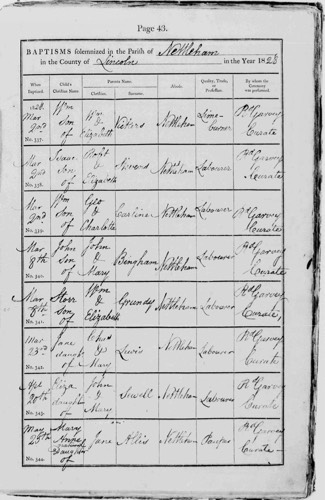 Page 43.
BAPTISMS solemnized in the Parish of Nettleham
in the County of Lincoln in the Year 1828
When Baptized. Child's Christian Name. Parents Name. Christian. Surname. Abode. Quality, Trade, or Profession. By whom the Ceremony was performed.
1828. Mar 2nd No. 337. Wm Son of Wm & Elizabeth Nettleham Lime Burner R Garvey Curate
Mar 2nd No. 338. Isaac Son of Robt & Elizabeth Nettleham Labourer R Garvey Curate
Mar 2nd No. 339. Wm Son of Geo & Charlotte Nettleham Labourer R Garvey Curate
Mar 8th No. 340. John Son of John & Mary Bingham Nettleham Labourer R Garvey Curate
Mar 8th No. 341. Storr Son of Wm & Elizabeth Grundy Nettleham Labourer R Garvey Curate
Mar 23rd No. 342. Jane daughter of & Mary Lewis Nettleham Labourer R Garvey Curate
No. 343. Eliza daughter of John & Mary Sewell Nettleham Labourer R Garvey Curate
May 25th No. 344. Mary Anne Daughter of Jane Allis Nettleham Pauper R Garvey Curate